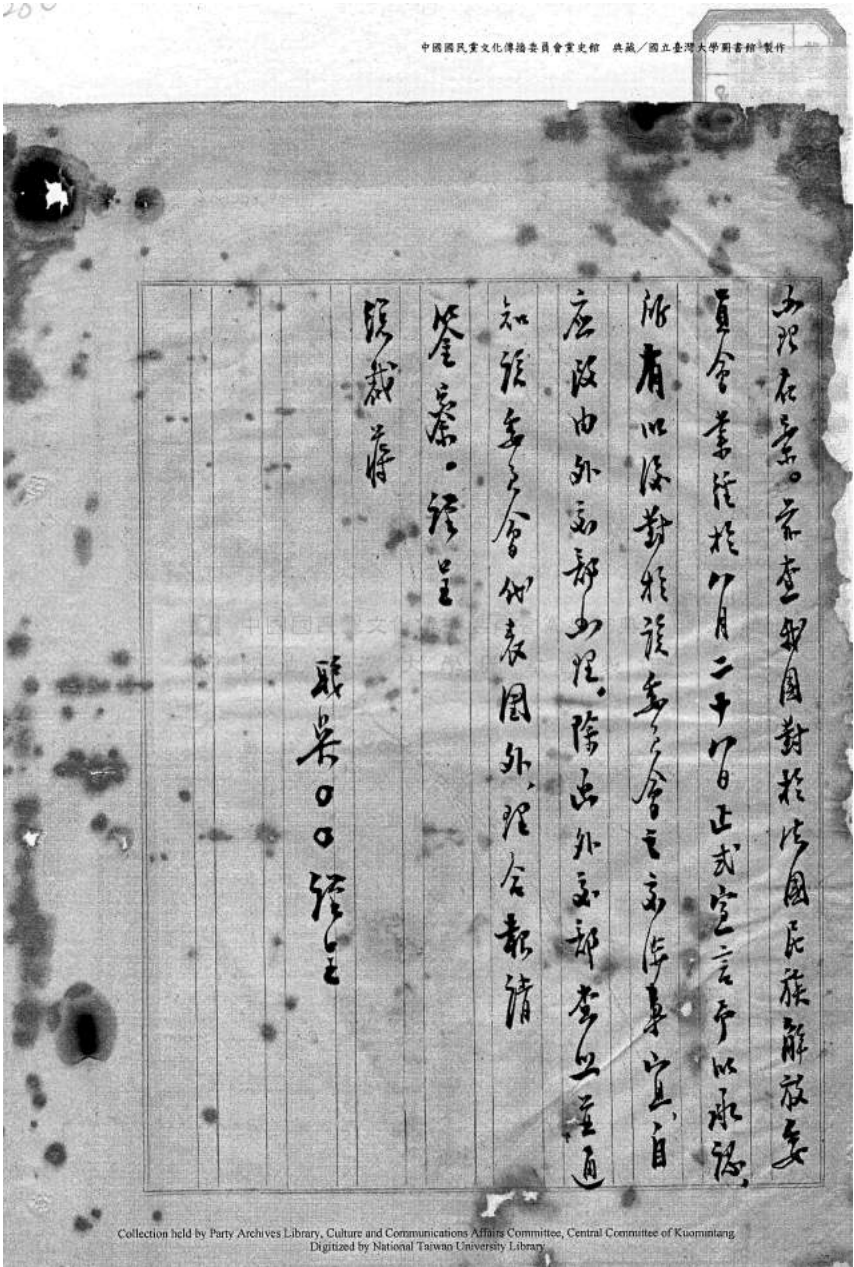 中國國民黨文化傳播委員會黨史館 典藏／國立臺灣大學圖書館 製作
办理在案。茲查我國對於法國民族解放委
員會業經於八月二十八日正式宣言予以承認、
所有以後對於該委員會之交涉事宜、自
應改由外交部办理、除函外交部查照並通
知該委員會代表團外、理合報請
鑒察。謹呈
總裁蔣
職吳〇〇謹呈
Collection held by Party Archives Library, Culture and Communications Affairs Committee, Central Committee of Kuomintang
Digitized by National Taiwan University Library